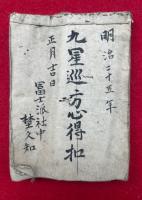 明治二十五年
九星巡方心得扣
正月吉日
冨士派社中